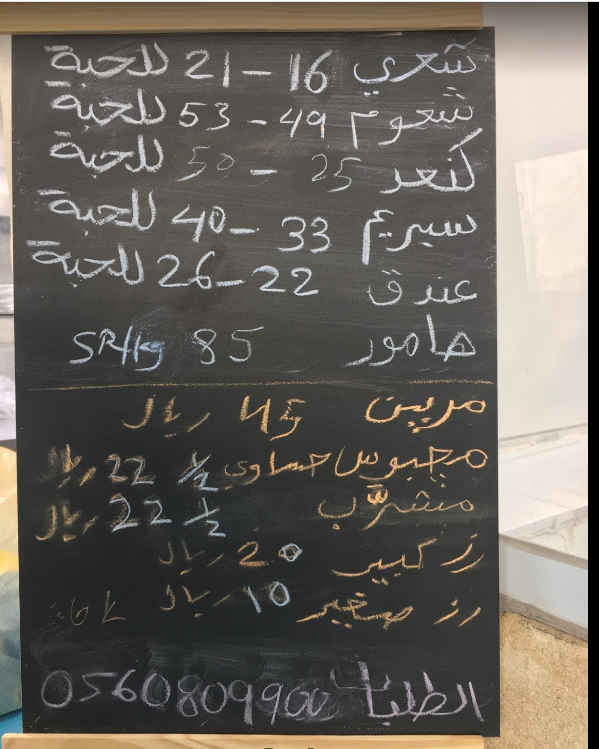 شعري 16 - 21 للحبة
شعوم 49 - 53 للحبة
كنعد 25 - 50 للحبة
سبريم 33 - 40 للحبة
عندق 22 - 26 للحبة
هامور 85 SR/Kg
مربين 45 ريال
محبوس حساوي ½ 22 ريال
مشرّب ½ 22 ريال
رز كبير 20 ريال
رز صغير 10 ريال
الطلبات 0560809900